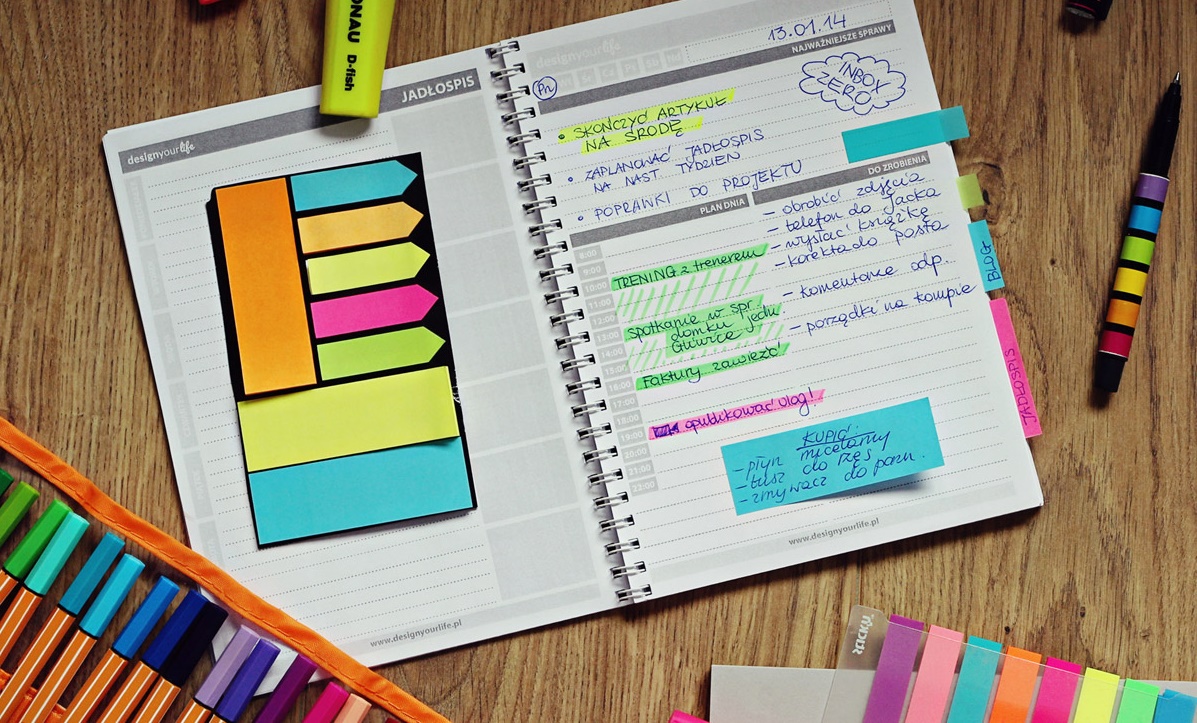 DONAU D-fish
JADŁOSPIS
designyourlife
www.designyourlife.pl
designyourlife
13.01.14
NAJWAŻNIEJSZE SPRAWY
Pn
INBOX
ZERO
• SKOŃCZYĆ ARTYKUŁ
NA ŚRODĘ
• ZAPLANOWAĆ JADŁOSPIS
NA NAST TYDZIEŃ
• POPRAWKI DO PROJEKTU
PLAN DNIA
8:00
9:00
10:00
11:00
12:00
13:00
14:00
15:00
16:00
17:00
18:00
19:00
20:00
21:00
22:00
TRENING z trenerem
spotkanie w spr.
domku jedn
Gliwice
Faktury zawieźć
opublikować vlog!
DO ZROBIENIA
- obrobić zdjęcia
- telefon do Jacka
- wysłać książkę
- korekta do posta
- komentarze odp.
- porządki na kompie
KUPIĆ:
- płyn micelarny
- tusz do rzęs
- zmywacz do pazn.
www.designyourlife.pl
BLOG
JADŁOSPIS
sticky